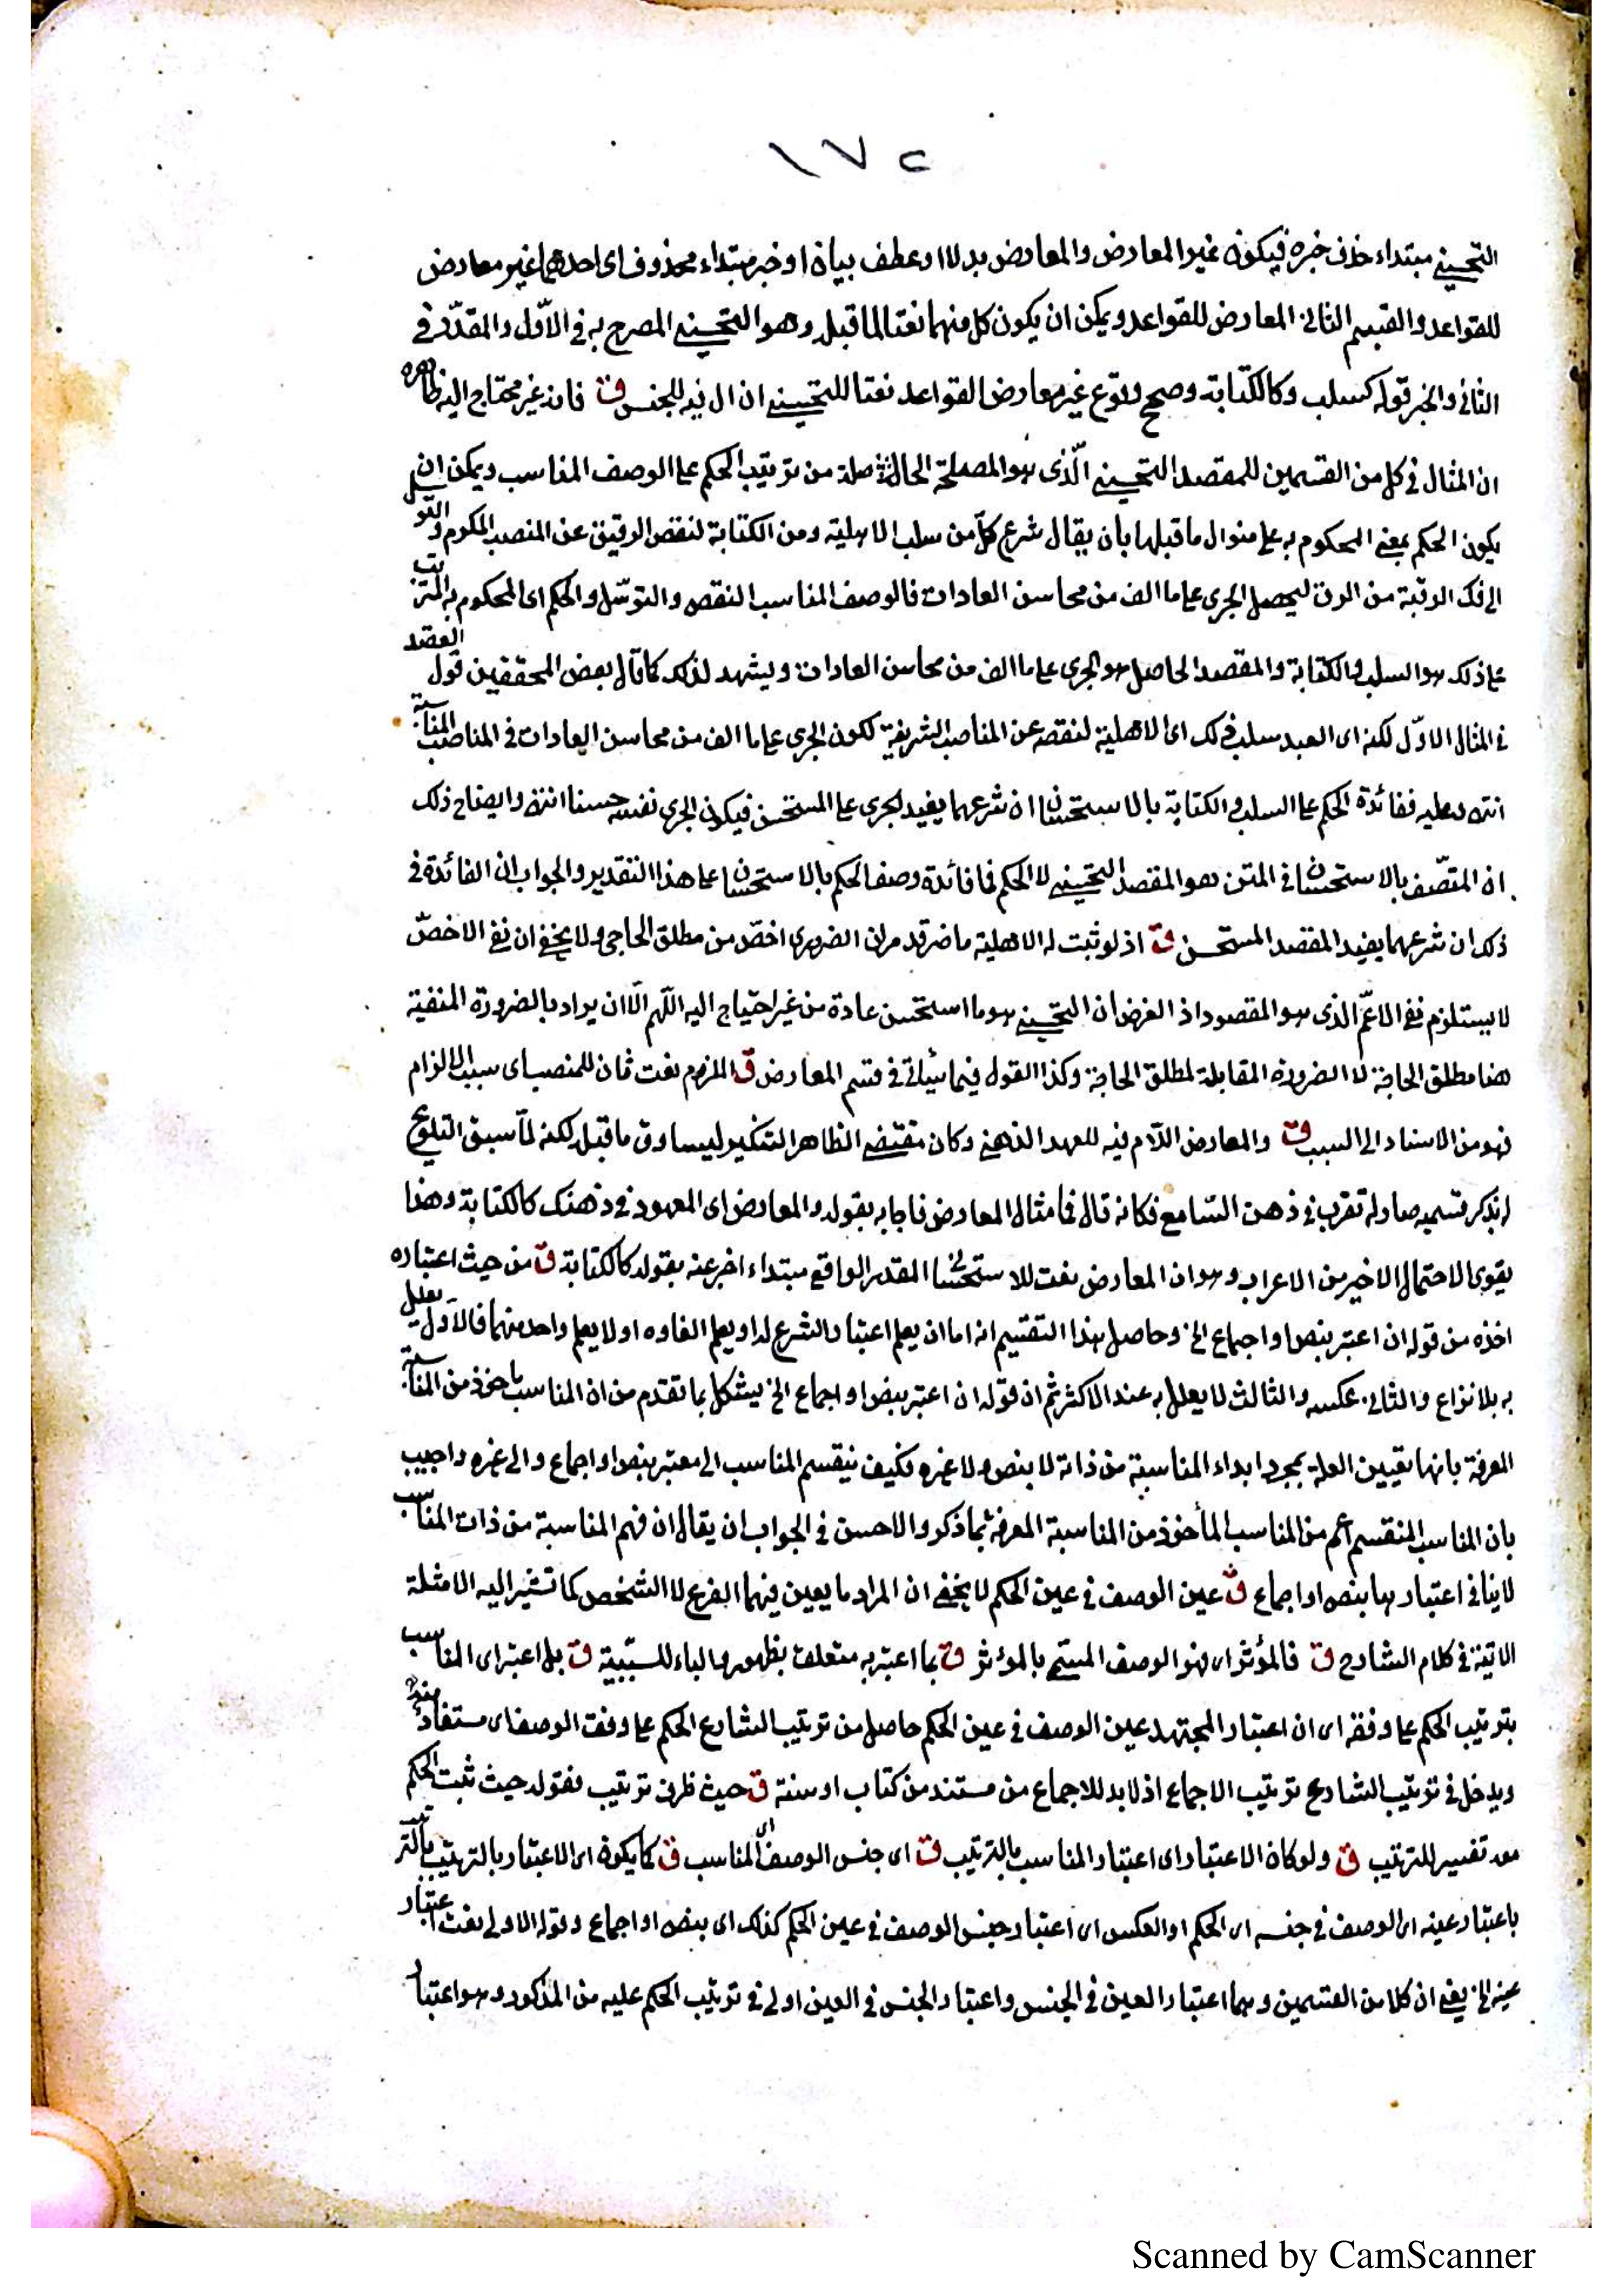 ١٧٢
التحسيني مبتداء حذف خبره فيكون غير المعارض والمعارض بدلا او عطف بيان او خبر مبتداء محذوف اى احدهما غير معارض
للقواعد والقسم الثانى المعارض للقواعد ويمكن ان يكون كل منهما نعتا لما قبله وهو التحسيني المصرح به فى الاوّل والمقدّر فى
الثانى والخبر قوله كسلب وكالكتابة وصح وقوع غير معارض القواعد نعتا للتحسيني ان ال فيه للجنس ق فانه غير محتاج اليه ظاهره
ان المثال فى كل من القسمين للمقصد التحسيني الّذى هو المصلحة الحاصلة من ترتيب الحكم على الوصف المناسب ويمكن ان
يكون الحكم بمعنى المحكوم به على منوال ما قبلها بأن يقال شرع كلّ من سلب الاهلية ومن الكتابة لنقص الرقيق عن المنصب المكرم والتوسل
الى فك الرقبة من الرق ليحصل الجرى على ما الف من محاسن العادات فالوصف المناسب النقص والتوسّل والحكم اى المحكوم به المترتب
على ذلك هو السلب والكتابة والمقصد الحاصل هو الجرى على ما الف من محاسن العادات ويشهد لذلك كما قال بعض المحققين قول العضد
فى المثال الاوّل لكنه اى العبد سلب ذلك اى الاهلية لنقصه عن المناصب الشريفة لكون الجرى على ما الف من محاسن العادات فى المناصب المناسبة
انتهى وعليه ففائدة الحكم على السلب والكتابة بالاستحسان ان شرعهما يفيد الجرى على المستحسن فيكون الجرى نفسه حسنا انتهى وايضاح ذلك
ان المتّصف بالاستحسان فى المتن هو المقصد التحسيني لا الحكم فما فائدة وصف الحكم بالاستحسان على هذا التقدير والجواب ان الفائدة فى
ذلك ان شرعهما يفيد المقصد المستحسن ق اذ لو ثبت له الاهلية ما ضر قد مر ان الضرورى اخصّ من مطلق الحاجى ولا يخفى ان نفى الاخصّ
لا يستلزم نفى الاعمّ الذى هو المقصود اذ الغرض ان التحسيني هو ما استحسن عادة من غير احتياج اليه اللّهم الّا ان يراد بالضرورة المنفية
هنا مطلق الحاجة لا الضرورة المقابلة لمطلق الحاجة وكذا القول فيما سيأتى فى قسم المعارض ق الملزم نعت ثان للمنصب اى سبب الالزام
فهو من الاسناد الى السبب ق والمعارض اللّام فيه للعهد الذهنى وكان مقتضى الظاهر التنكير ليساوق ما قبله لكنه لمّا سبق التلويح
له بذكر قسميه صار له تقرب فى ذهن السّامع فكانه قال فما مثال المعارض فاجابه بقوله والمعارض اى المعهود فى ذهنك كالكتابة وهذا
يقوى الاحتمال الاخير من الاعراب وهو ان المعارض نعت للاستحسان المقدر الواقع مبتداء اخبر عنه بقوله كالكتابة ق من حيث اعتباره
اخذه من قوله ان اعتبر بنص او اجماع الخ وحاصل هذا التقسيم انه اما ان يعلم اعتبار الشرع له او يعلم الغاوه او لا يعلم واحد منهما فالاوّل يعلل
به بلا نزاع والثانى عكسه والثالث لا يعلل به عند الاكثر ثم ان قوله ان اعتبر بنص او اجماع الخ يشكل بما تقدم من ان المناسب مأخوذ من المناسبة
المعرفة بانها تعيين العلة بمجرد ابداء المناسبة من ذاته لا بنص ولا غيره فكيف ينقسم المناسب الى معتبر بنص او اجماع والى غيره واجيب
بان المناسب المنقسم اعم من المناسب المأخوذ من المناسبة المعرفة بما ذكر والاحسن فى الجواب ان يقال ان فهم المناسبة من ذات المناسب
لا ينافى اعتبارها بنص او اجماع ق عين الوصف فى عين الحكم لا يخفى ان المراد ما يعين فيهما الفرع لا الشخص كما تشير اليه الامثلة
الاتية فى كلام الشارح ق فالمؤثر اى فهو الوصف المسمّى بالمؤثر ق بما اعتبر به متعلق بظهور والباء للسّببية ق بل اعتبر اى المناسب
بترتيب الحكم على وفقه اى ان اعتبار المجتهد عين الوصف فى عين الحكم حاصل من ترتيب الشارع الحكم على وفق الوصف اى مستفاد منه
ويدخل فى ترتيب الشارع ترتيب الاجماع اذ لا بد للاجماع من مستند من كتاب او سنة ق حيث ظرف ترتيب فقوله حيث ثبت الحكم
معه تفسير للترتيب ق ولو كان الاعتبار اى اعتبار المناسب بالترتيب ق اى جنس الوصف اى المناسب ق كما يكون اى الاعتبار بالترتيب بالترتيب
باعتبار عينه اى الوصف فى جنسه اى الحكم او العكس اى اعتبار جنس الوصف فى عين الحكم كذلك اى بنص او اجماع وقوله الاولى نعت اعتبار
عينه الخ يعنى ان كلا من القسمين وهما اعتبار العين فى الجنس واعتبار الجنس فى العين اولى فى ترتيب الحكم عليه من المذكور وهو اعتبار
Scanned by CamScanner